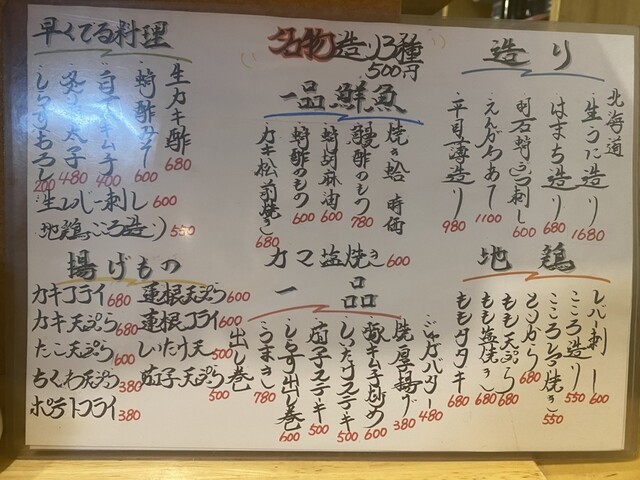 早くでる料理
生カキ酢 680
蛸酢みそ 600
白菜キムチ 400
炙り太子 480
しらすおろし 200
生レバー刺し 600
地鶏ごころ造り 550
名物造り3種
500円
造り
北海道
生うに造り 1680
はまち造り 680
明石蛸ぶつ刺し 600
えんがわあて 1100
平目薄造り 980
一品鮮魚
焼き蛤 時価
鰻酢のもの 780
蛸胡麻油 600
蛸酢のもの 600
カキ松前焼き 680
カマ塩焼き 600
地鶏
レバー刺し 600
こころ造り 550
こころしお焼き 550
とりから 680
もも天ぷら 680
もも塩焼き 680
ももタタキ 680
揚げもの
カキフライ 680
カキ天ぷら 680
たこ天ぷら 600
ちくわ天ぷら 380
ポテトフライ 380
蓮根天ぷら 600
蓮根フライ 600
しいたけ天 500
茄子天ぷら 500
一品
ジャガバター 480
焼厚揚げ 380
豚キムチ炒め 600
しいたけステーキ 500
茄子ステーキ 500
しらす出し巻 600
うまき 780
出し巻